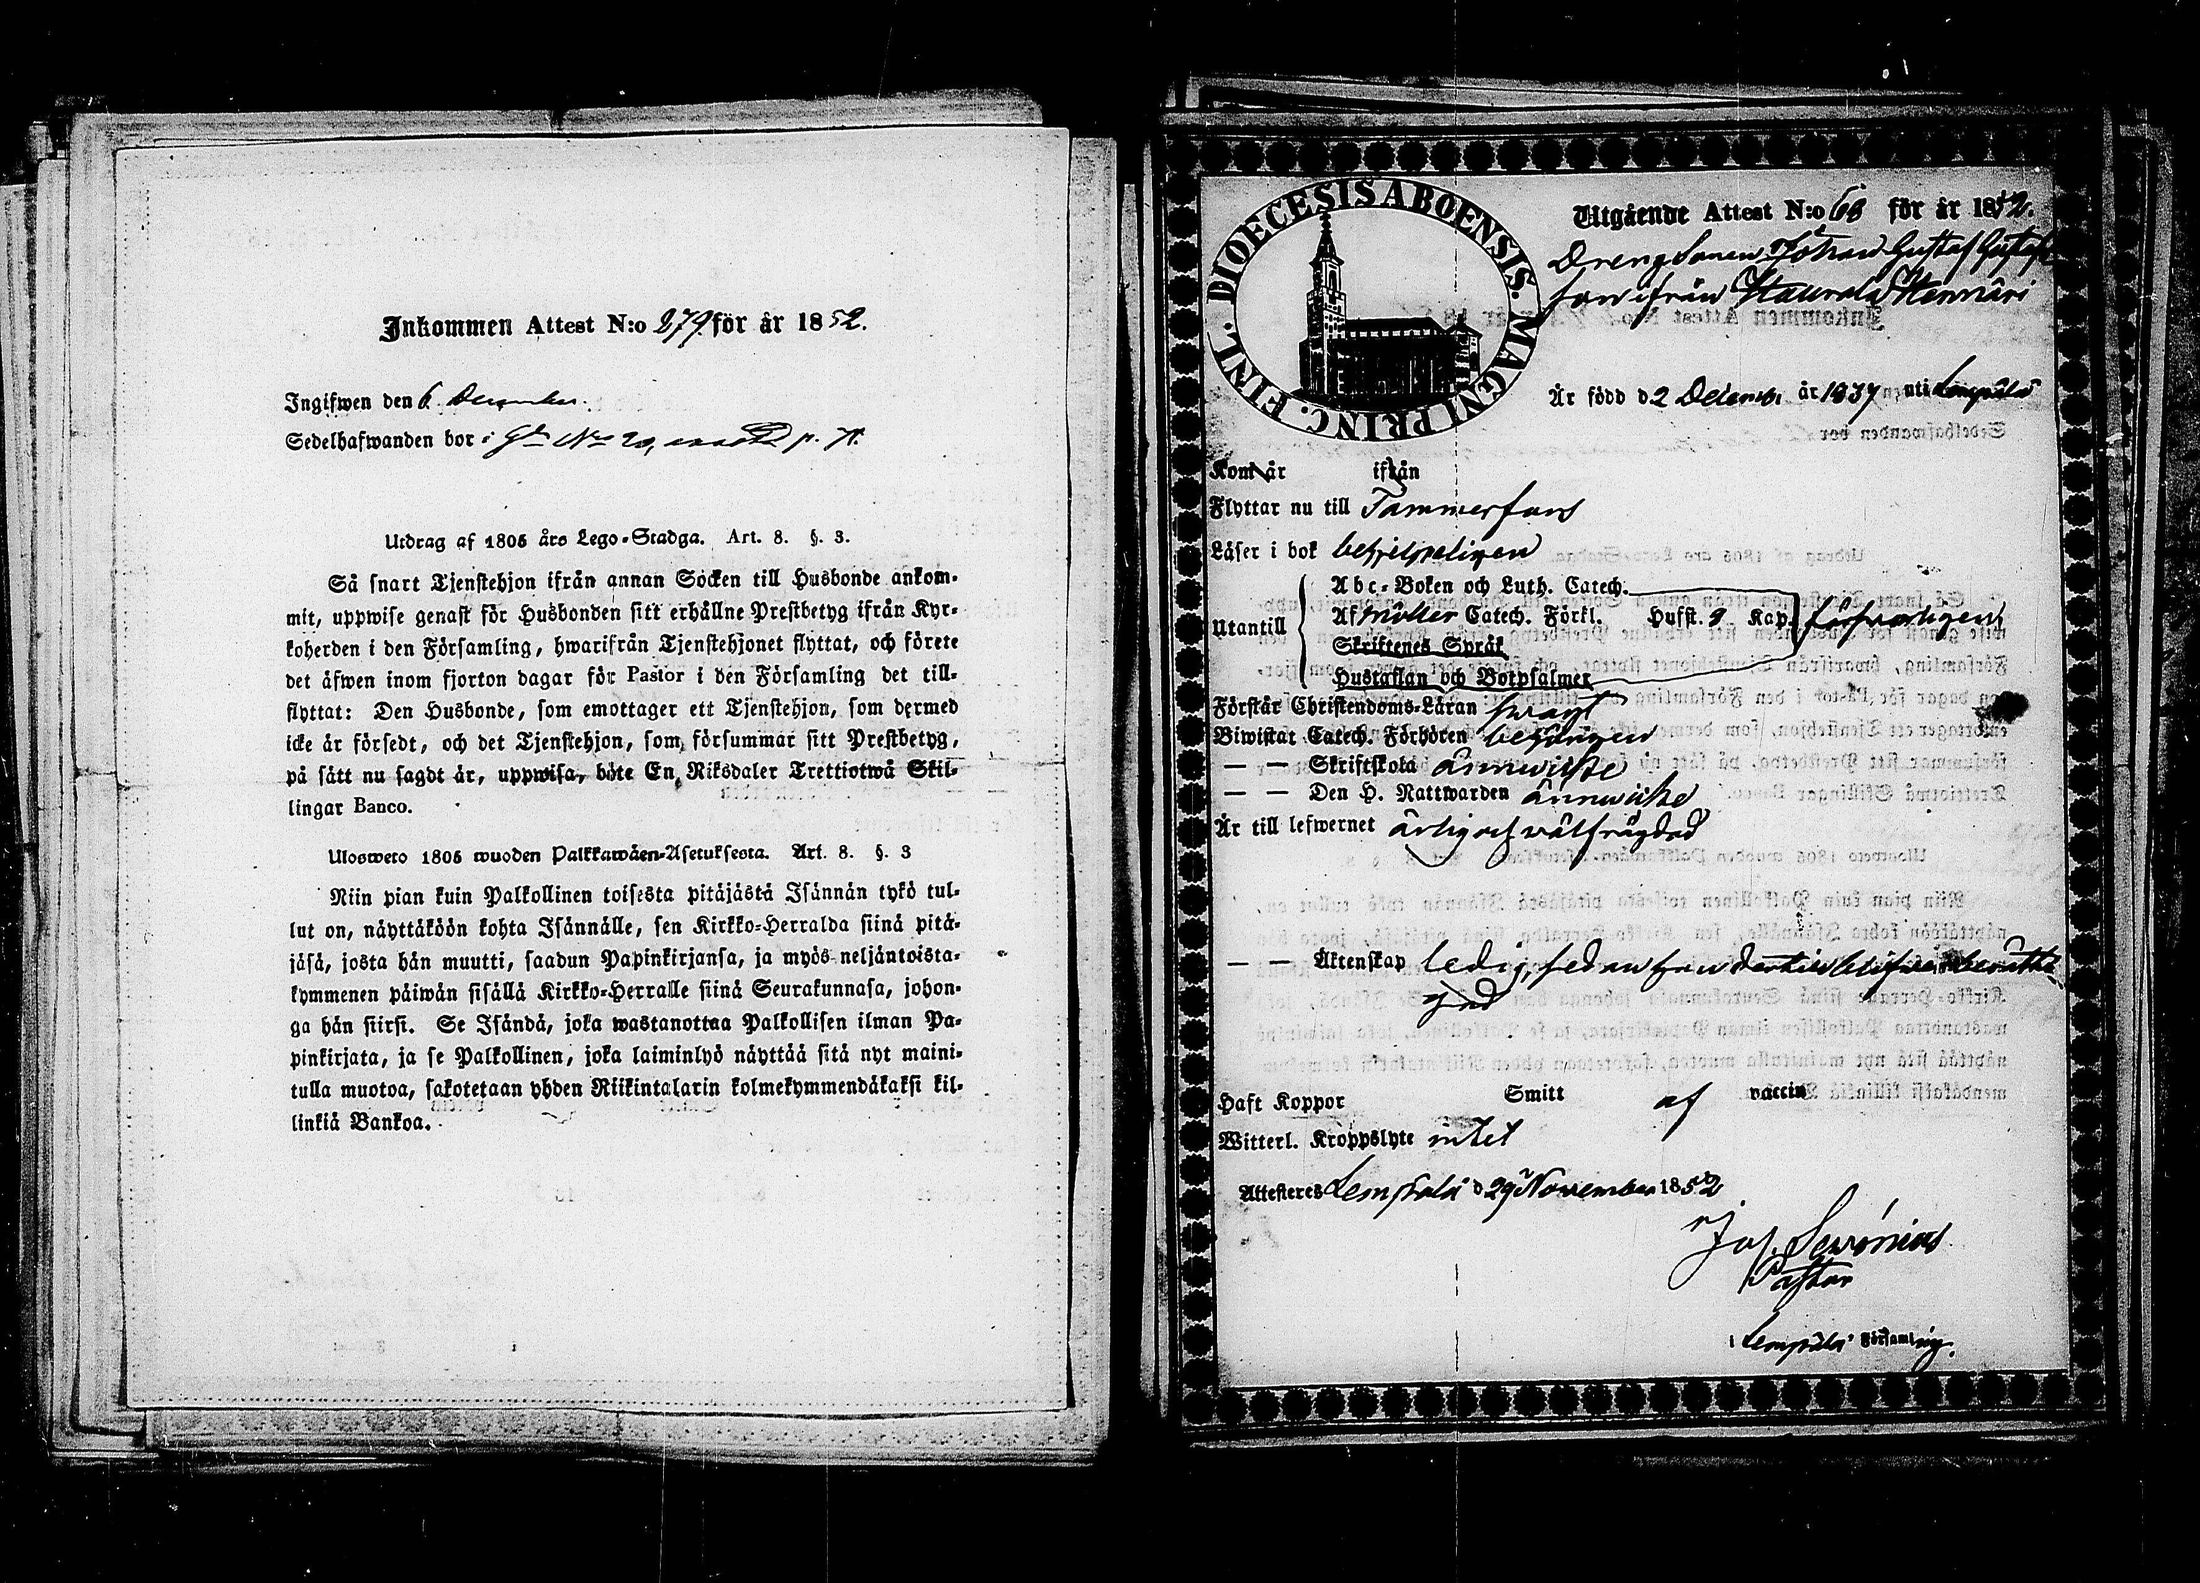 Inkommen Attest N:o 279 för år 1852.
Ingifwen den 6 December.
Sedelhafwanden bor i Gd No 20, p. 71.
Utdrag af 1805 års Lego-Stadga. Art. 8. §. 3.
Så snart Tjenstehjon ifrån annan Socken till Husbonde ankom-
mit, uppwise genast för Husbonden sitt erhållne Prestbetyg ifrån Kyr-
koherden i den Församling, hwarifrån Tjenstehjonet flyttat, och förete
det äfwen inom fjorton dagar för Pastor i den Församling det till-
flyttat: Den Husbonde, som emottager ett Tjenstehjon, som dermed
icke är försedt, och det Tjenstehjon, som försummar sitt Prestbetyg,
på sätt nu sagdt är, uppwisa, böte En Riksdaler Trettiotwå Skil-
lingar Banco.
Ulosweto 1805 wuoden Palkkawäen-Asetuksesta. Art. 8. §. 3
Niin pian kuin Palkollinen toisesta pitäjästä Isännän tykö tul-
lut on, näyttäköön kohta Isännälle, sen Kirkko-Herralda siinä pitä-
jäsä, josta hän muutti, saadun Papinkirjansa, ja myös neljäntoista-
kymmenen päiwän sisällä Kirkko-Herralle siinä Seurakunnasa, johon-
ga hän siirsi. Se Isändä, joka wastanottaa Palkollisen ilman Pa-
pinkirjata, ja se Palkollinen, joka laiminlyö näyttää sitä nyt maini-
tulla muotoa, sakotetaan yhden Riikintalarin kolmekymmendäkaksi kil-
linkiä Bankoa.
DIOECESIS ABOENSIS. MAGNI PRINC. FINL.
Utgående Attest N:o 68 för år 1852.
Drengsonen Johan Gustaf Gustafs-
son ifrån Hennäri
Är född d 2 Decemb. år 1837 uti Lempälä
Kom år ifrån
Flyttar nu till Tammerfors
Läser i bok behjelpeligen
Utantill
Abc-Boken och Luth. Catech.
Af Möller Catech. Förkl. Hufst. 9 Kap. försvarligen
Skriftenes Språk
Hustaflan och Botpsalmer
Förstår Christendoms-Läran swagt
Biwistat Catech. Förhören behörigen
— — Skriftskola ännu icke
— — Den H. Nattwarden ännu icke
Är till lefwernet ärlig och wälfrägdad
— — Äktenskap ledig,
Haft Koppor Smitt af vaccin
Witterl. Kroppslyte intet
Attesteres Lempälä d 29 November 1852
Jos. Sevónius
Pastor
i Lempälä Församling.